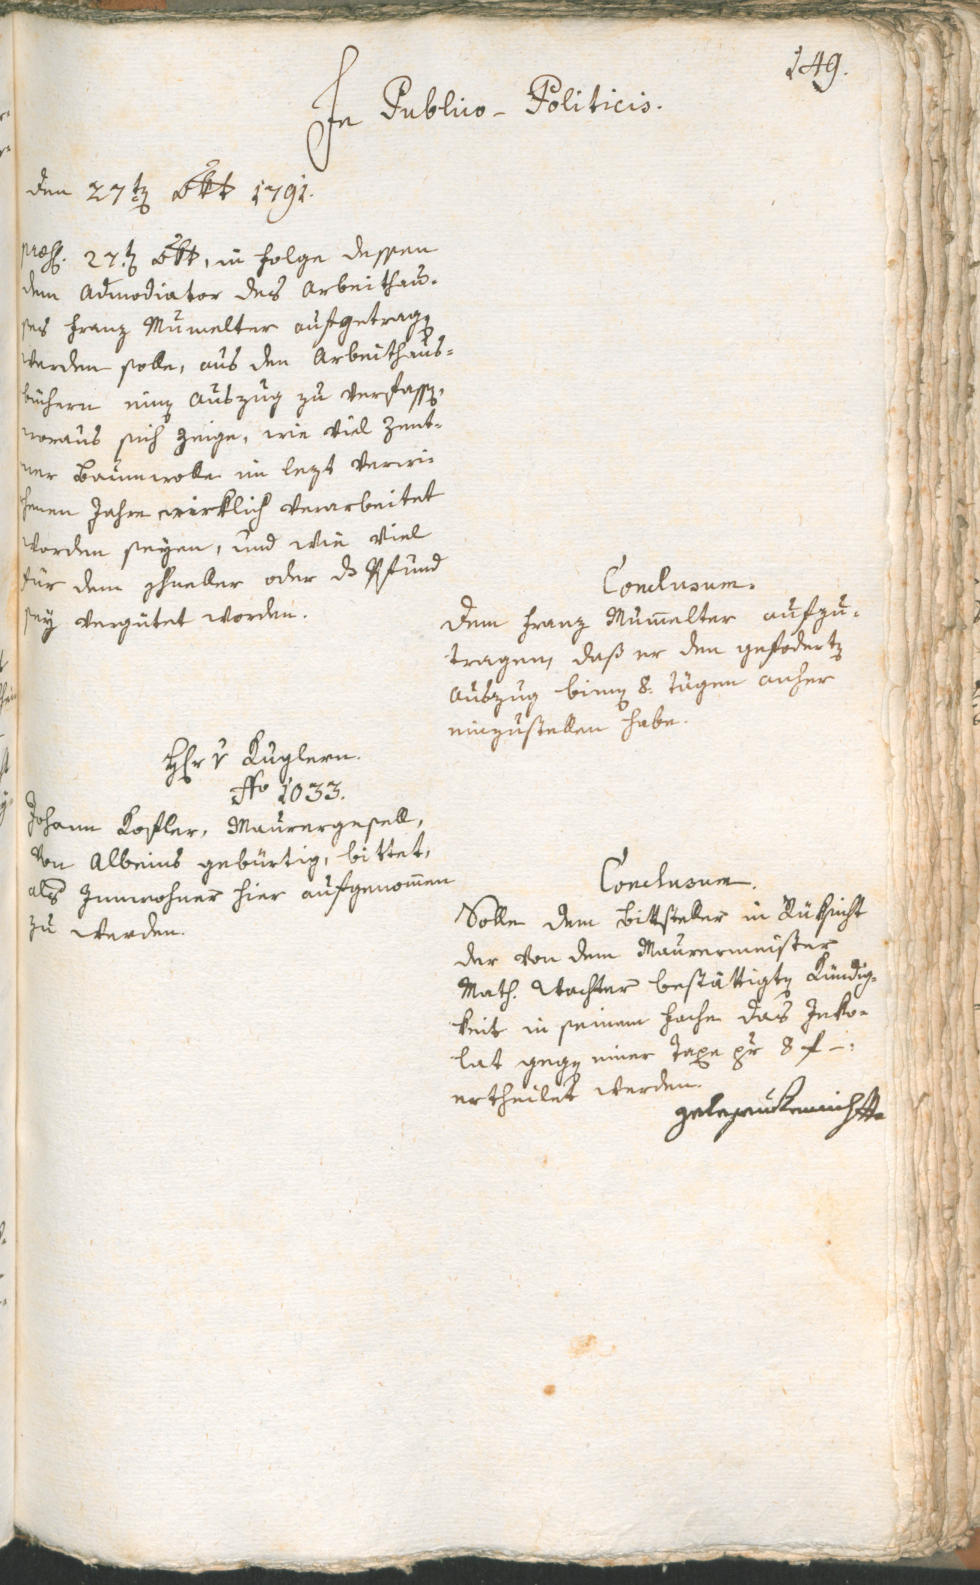 149.
In Publico-Politicis.
den 27ten 8br 1791.
præs. 27ten 8br, in Folge dessen
dem Admodiator des Arbeithau-
ses Franz Mumelter aufgetragen
werden solle, aus den Arbeithaus-
büchern einen Auszug zu verfassen,
woraus sich zeige, wie viel Zent-
ner Baumwolle im lezt verwi-
chenen Jahre wirklich verarbeitet
worden seyen, und wie viel
für dem Schneller oder das Pfund
sey vergütet worden.
Conclusum.
Dem Franz Mumelter aufzu-
tragen, daß er den gefoderten
Auszug binnen 8. Tägen anher
einzustellen habe.
Hr v Kuglern.
No 1033.
Johann Kofler, Maurergesell,
von Albeins gebürtig, bittet,
als Innwohner hier aufgenommen
zu werden.
Conclusum.
Solle dem Bittsteller in Rüksicht
der von dem Maurermeister
Math. Wachter bestättigten Kündig-
keit in seinem Fache das Inko-
lat gegen einer Taxe pr 8 f –
ertheilet werden.